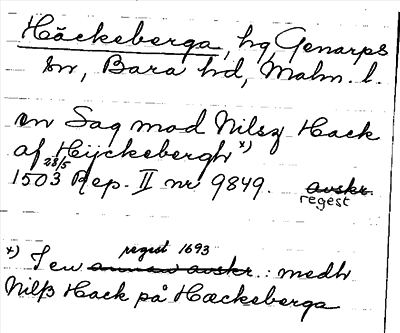 Häckeberga, hg, Genarps
sn, Bara hd, Malm. l.
en Sag mod Nilsz Hack
af Hijckebergh x)
28/5
1503 Rep. II nr 9849. avskr.
regest
regest 1693
x) I en annan avskr.: medh
Nilß Hack på Hackeberga